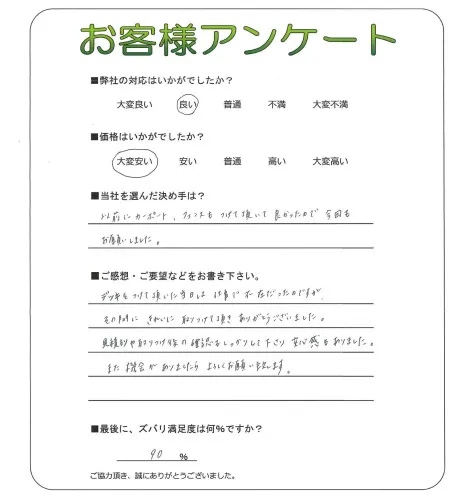 お客様アンケート
■弊社の対応はいかがでしたか？
大変良い 良い 普通 不満 大変不満
■価格はいかがでしたか？
大変安い 安い 普通 高い 大変高い
■当社を選んだ決め手は？
以前にカーポート、フェンスもつけて頂いて良かったので今回も
お願いしました。
■ご感想・ご要望などをお書き下さい。
デッキをつけて頂いた当日は仕事で不在だったのですが、
その間にきれいに取りつけて頂きありがとうございました。
見積りや取りつけ時の確認もしっかりして下さり安心感もありました。
また機会がありましたらよろしくお願い致します。
■最後に、ズバリ満足度は何％ですか？
90 ％
ご協力頂き、誠にありがとうございました。